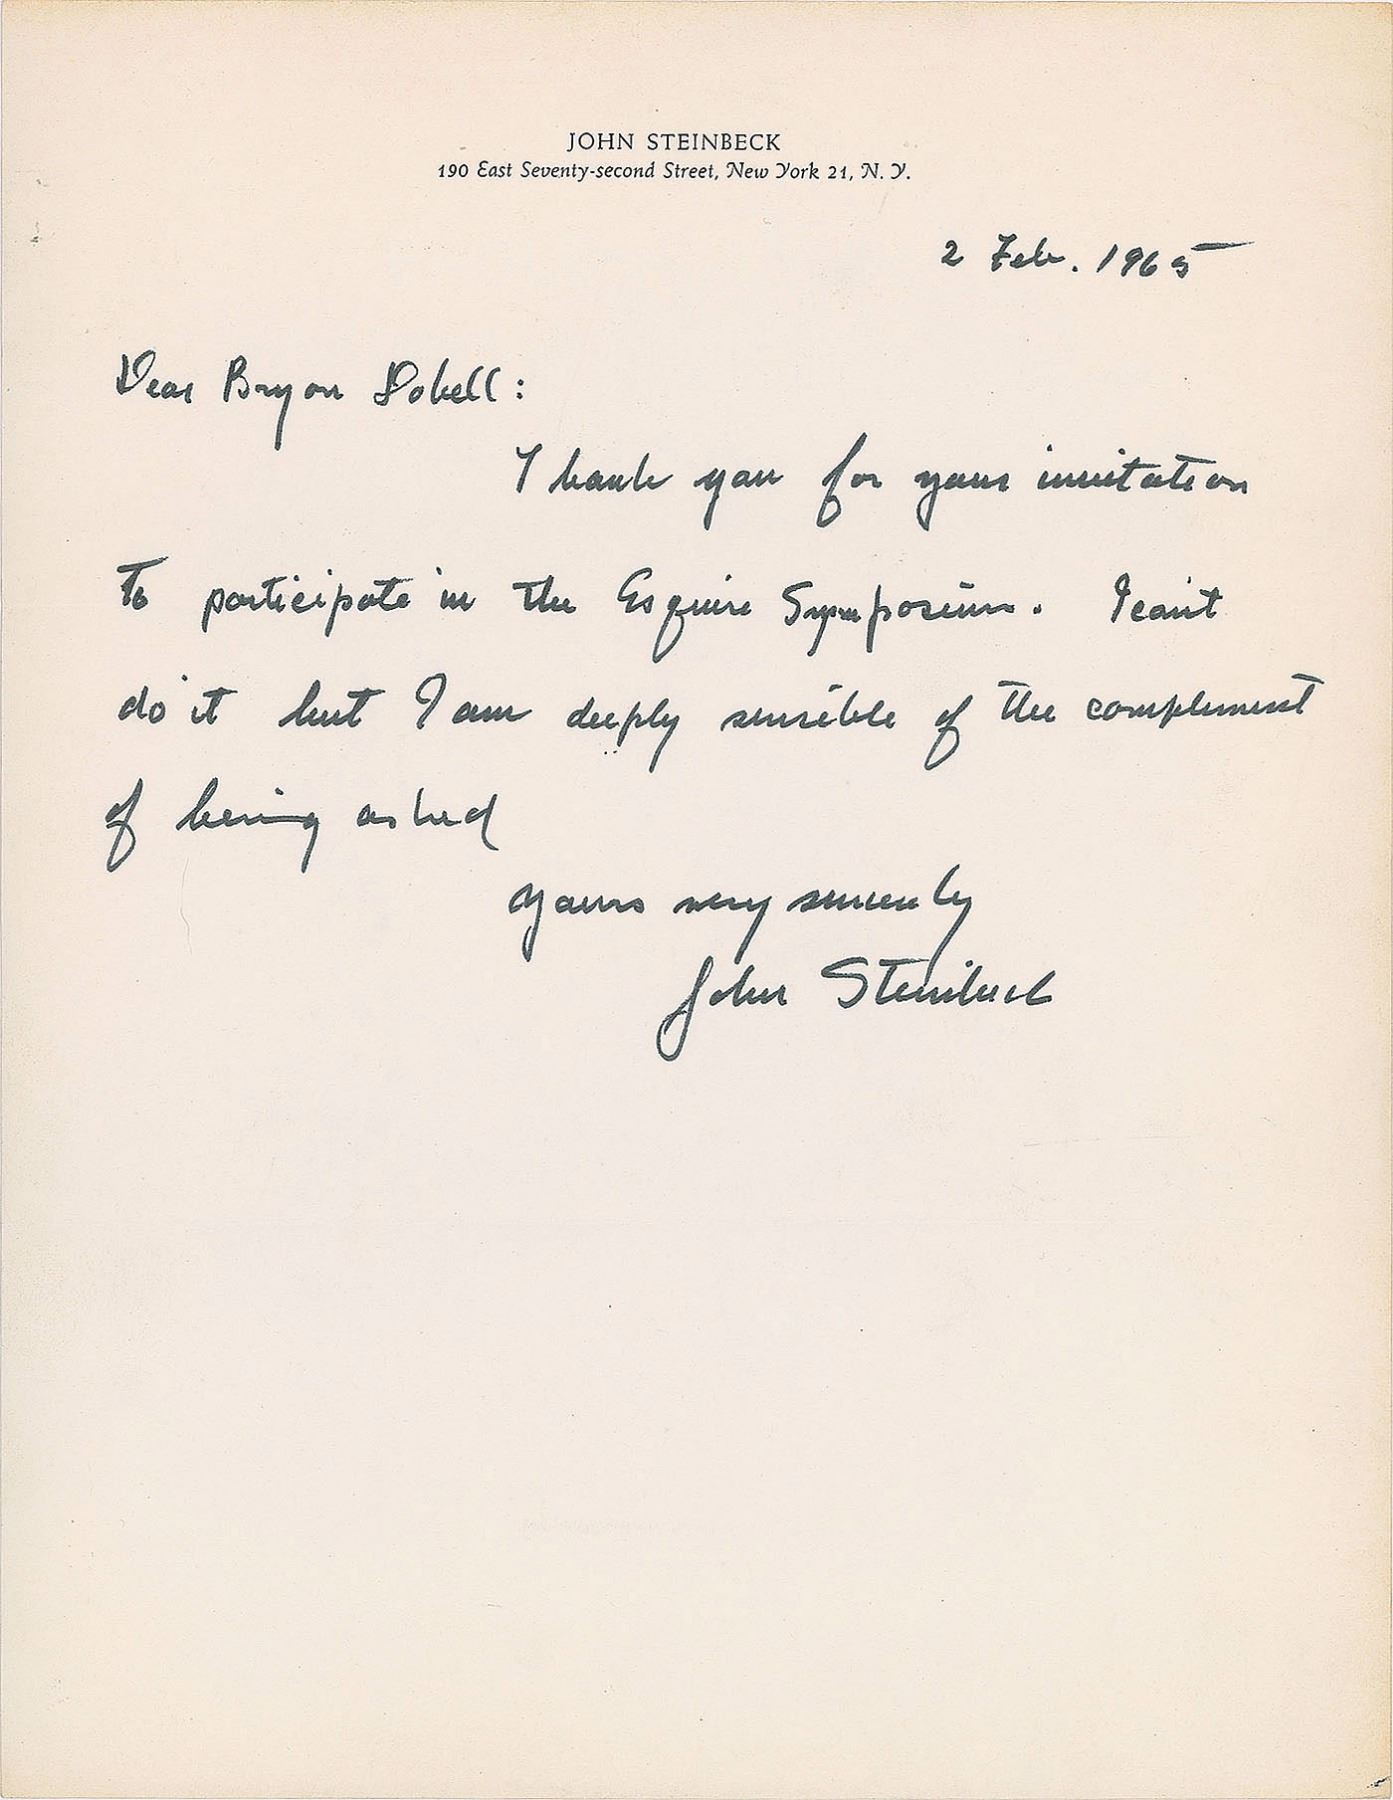 JOHN STEINBECK
190 East Seventy-second Street, New York 21, N. Y.
2 Feb. 1965
Dear Bryon Dobell:
Thank you for your invitation
to participate in the Esquire Symposium. I can't
do it but I am deeply sensible of the complement
of being asked
Yours very sincerely
John Steinbeck